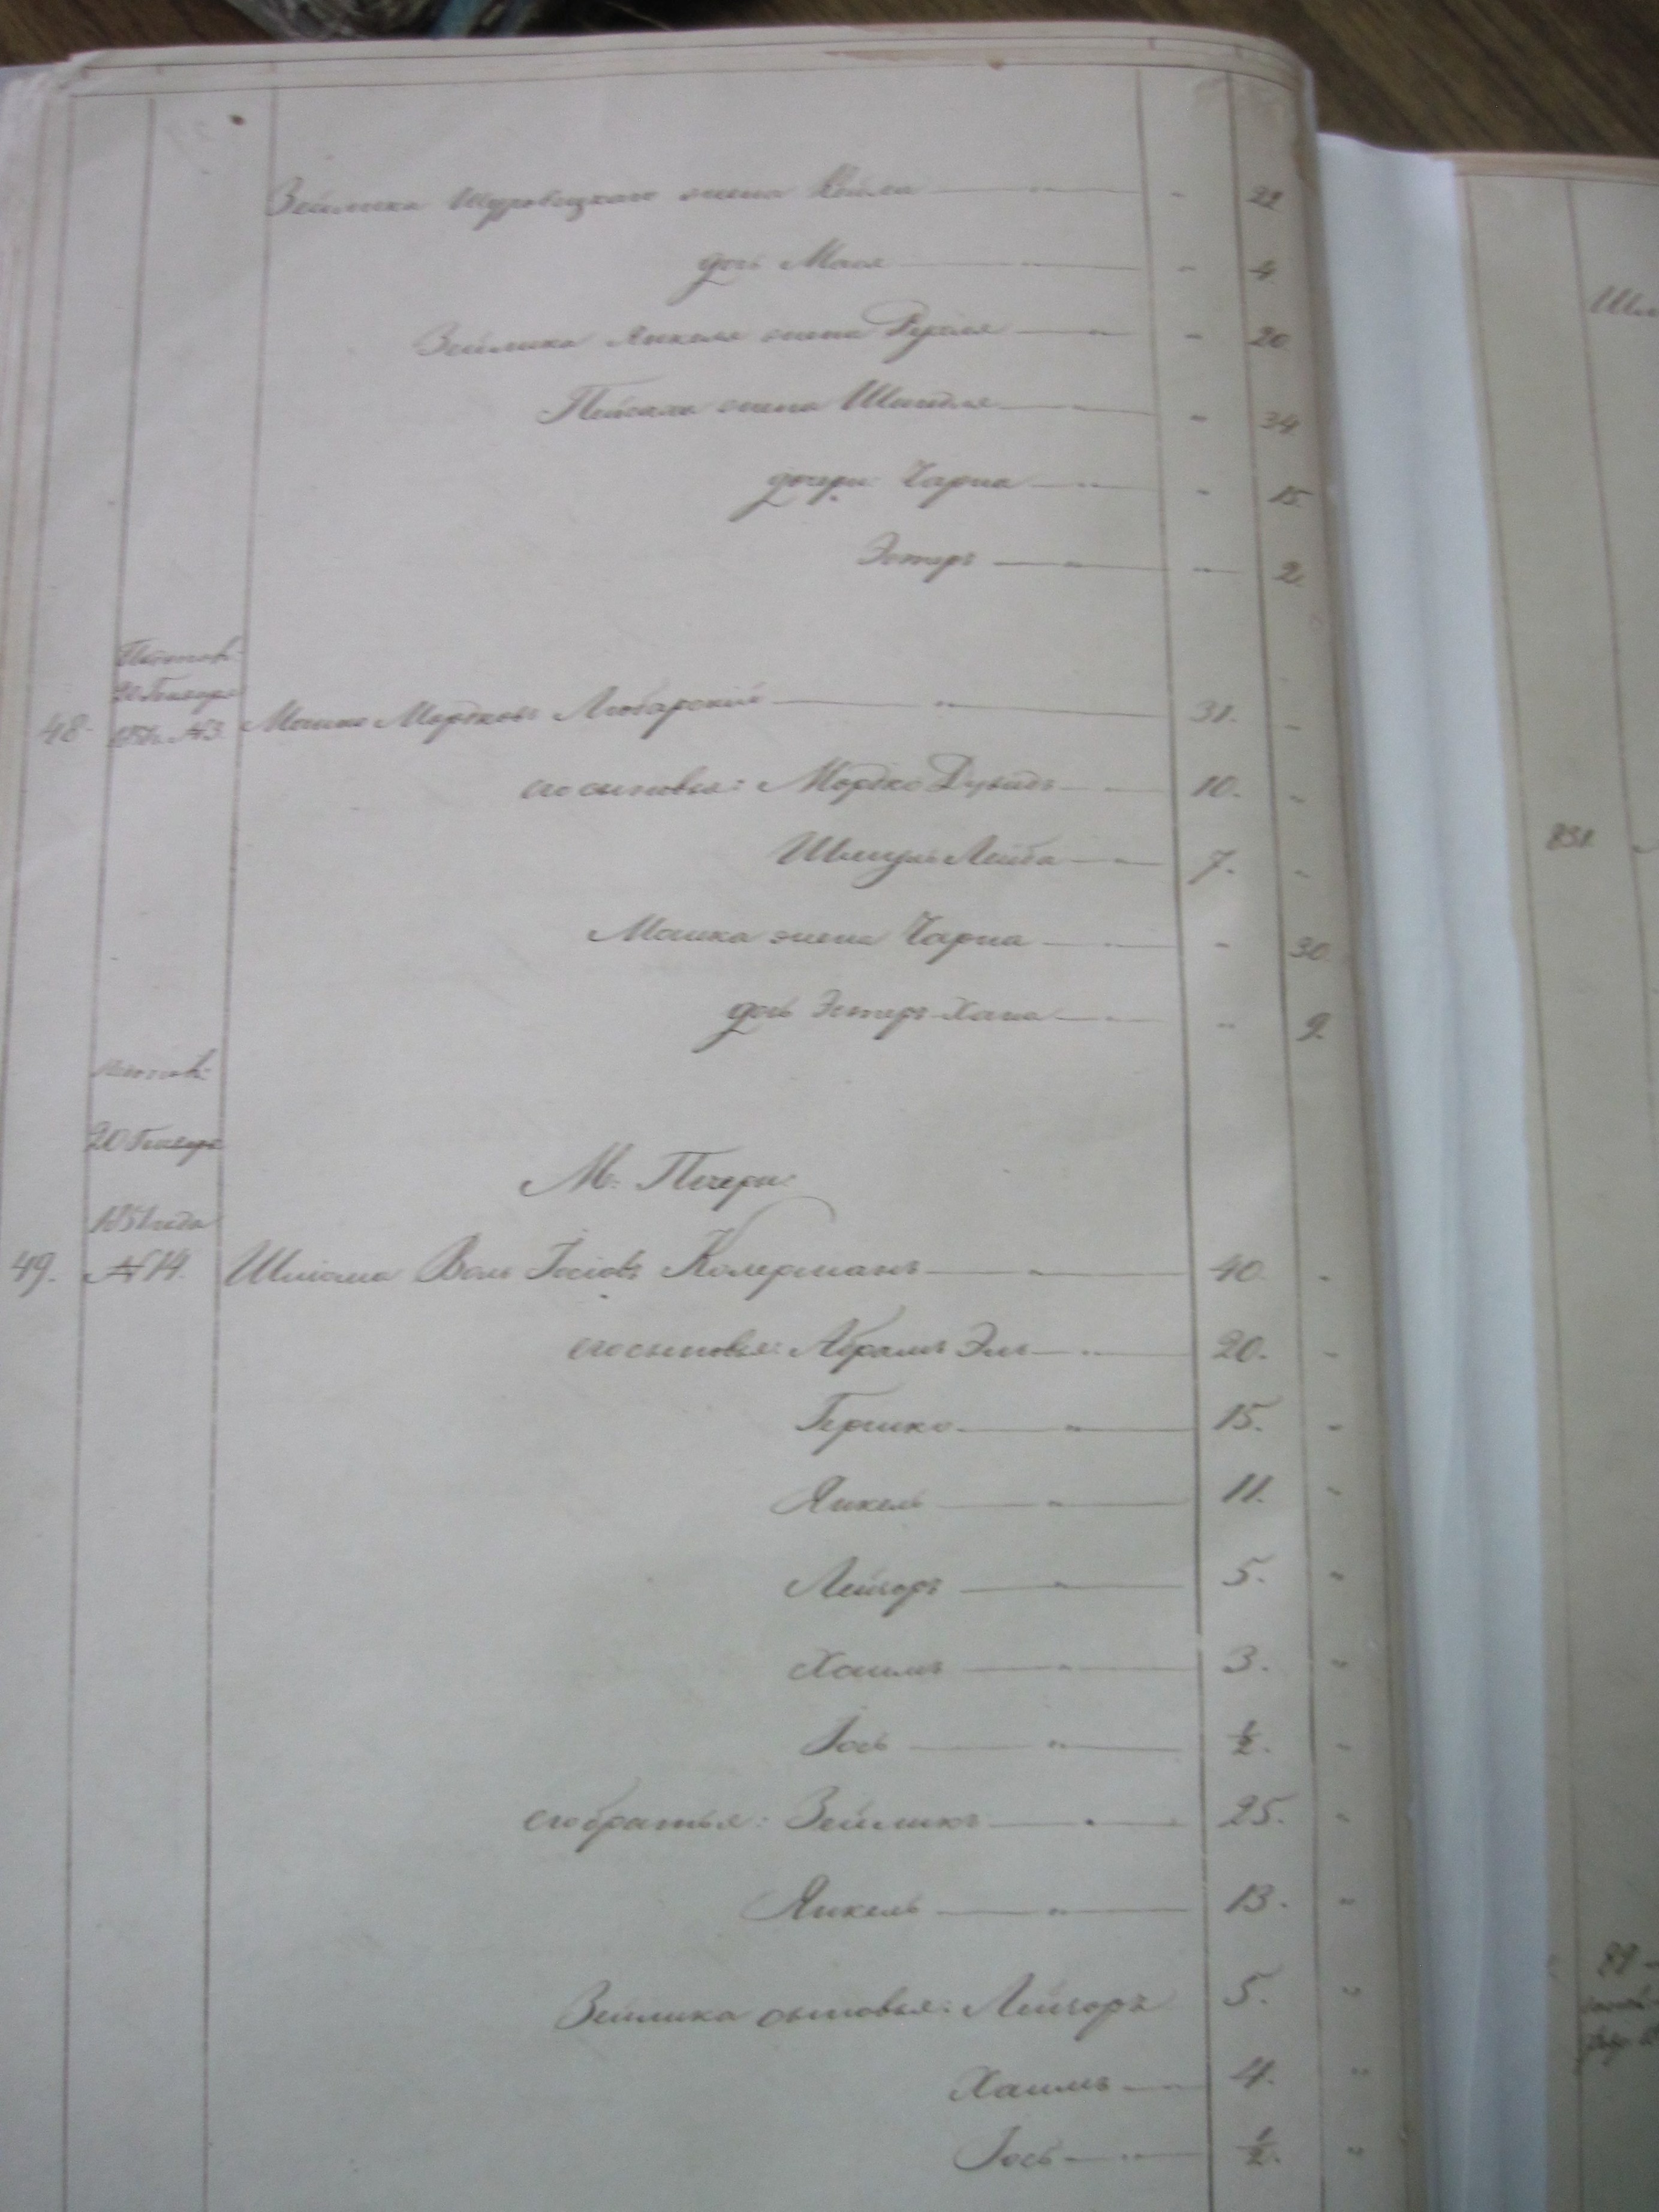 Зейлика Щуровецкаго жена Бейла — " — - 22
дочь Мася — " — - 4
Зейлика Янкеля жена Рухля — " — - 20.
Пейсаха жена Шейндля — " — - 34
дочери: Чарна — " — - 15.
Эстеръ — " — " 2
Постанов:
20 Генваря
48. 1851г. №3. Мошко Мордковъ Любарскій — " — 31. -
его сыновья: Мордко Дувидъ — " — 10. -
Шмуль Лейба — " — 7. -
Мошка жена Чарна — " — - 30.
дочь Эстеръ-Хана — " — " 9.
постанов:
20 Генваря
М: Печера:
1851 года
49. №14. Шлiома Волъ Іосіовъ Колерманъ — " — 40. -
его сыновья: Абрамъ Эль — " — 20. -
Гершко — " — 15. -
Янкель — " — 11. "
Лейзоръ — " — 5. "
Хаимъ — " — 3. "
Іось — " — ½. -
его братья: Зейликъ — " — 25. "
Янкель — " — 13. "
Зейлика сыновья: Лейзоръ 5. "
Хаимъ — " — 4. "
Іось — " — ½. "
831.